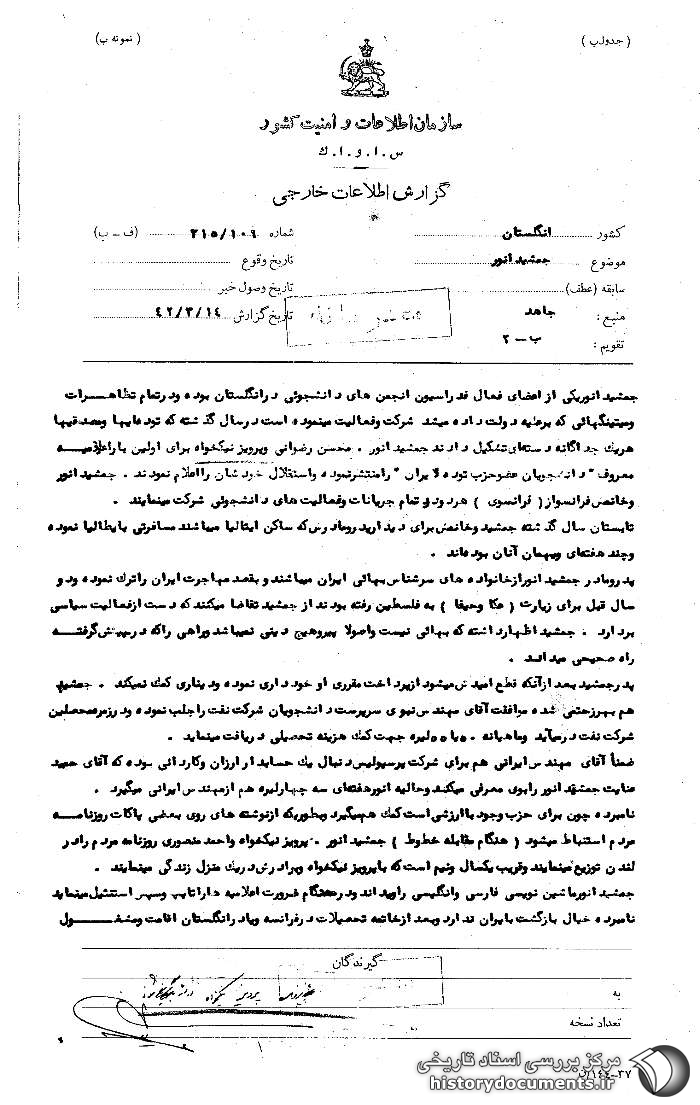 ( جدول ب )
( نمونه ب )
سازمان اطلاعات و امنیت کشور
س . ا . و . ا . ك
گزارش اطلاعات خارجی
کشور انگلستان
شماره ۲۱۵/۱۰۹ (ف - ب)
موضوع جمشید انور
تاریخ وقوع
سابقه (عطف)
تاریخ وصول خبر
منبع : جاهد
تاریخ گزارش ۴۲/۳/۱۴
تقویم : ب - ۲
جمشید انور یکی از اعضای فعال فدراسیون انجمن های دانشجوئی در انگلستان بوده و در تمام تظاهرات
و میتینگهائی که برعلیه دولت داده میشد شرکت و فعالیت مینموده است در سال گذشته که توده ایها و مصدقیها
هریك جداگانه دسته ای تشکیل دادند جمشید انور . محسن رضوانی و پرویز نیکخواه برای اولین بار اعلامیه
معروف " دانشجویان عضو حزب توده ایران " را منتشر نموده و استقلال خود شان را اعلام نمودند . جمشید انور
و خانمش فرانسواز ( فرانسوی ) هر دو در تمام جریانات و فعالیت های دانشجوئی شرکت مینمایند .
تابستان سال گذشته جمشید و خانمش برای دیدار پدر و مادرش که ساکن ایتالیا میباشند مسافرتی بایطالیا نموده
و چند هفته ای میهمان آنان بوده اند .
پدر و مادر جمشید انور از خانواده های سرشناس بهائی ایران میباشند و بقصد مهاجرت ایران را ترك نموده و دو
سال قبل برای زیارت ( عکا و حیفا ) به فلسطین رفته بودند از جمشید تقاضا میکنند که دست از فعالیت سیاسی
بردارد . جمشید اظهار داشته که بهائی نیست و اصولا پیرو هیچ دینی نمیباشد و راهی را که در پیش گرفته
راه صحیحی میداند .
پدر جمشید بعد از آنکه قطع امیدش میشود از پرداخت مقرری او خود داری نموده و دیناری کمك نمیکند . جمشید
هم بهر زحمتی شده موافقت آقای مهندس نبوی سرپرست دانشجویان شرکت نفت را جلب نموده و در زمره محصلین
شرکت نفت در میآید و ماهیانه لیره جهت کمك هزینه تحصیلی دریافت مینماید .
ضمناً آقای مهندس ایرانی هم برای شرکت پرسپولیس دنبال یك حسابدار ارزان و کاردانی بوده که آقای حمید
عنایت جمشید انور را بوی معرفی میکند و حالیه انور هفته ای سه چهار لیره هم از مهندس ایرانی میگیرد .
نامبرده چون برای حزب وجود با ارزشی است کمك هم میگیرد و بطوریکه از نوشته های روی بعضی پاکات روزنامه
مردم استنباط میشود ( هنگام مقابله خطوط ) جمشید انور . پرویز نیکخواه و احمد منصوری روزنامه مردم را در
لندن توزیع مینمایند و قریب یکسال و نیم است که با پرویز نیکخواه و برادرش در یك منزل زندگی مینمایند .
جمشید انور ماشین نویسی فارسی و انگلیسی را وید اند و در هنگام ضرورت اعلامیه ها را تایپ و سپس استنسیل مینماید
نامبرده خیال بازگشت بایران ندارد و بعد از خاتمه تحصیلات در فرانسه و یا در انگلستان اقامت و مشغول
گیرندگان
به
تعداد نسخه
۱
۳۷-۱۴۴
مرکز بررسی اسناد تاریخی
historydocuments.ir